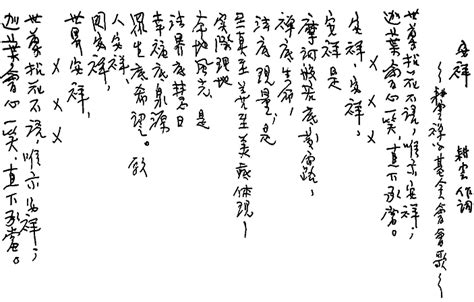 安祥 耕雲作詞
~耕雲禪學基金會會歌~
世尊拈花不語,唯示安祥;
迦葉會心一笑,直下承當。
x x x
安祥,安祥,
安祥是
摩訶般若底黃金路,
禪底生命,
法底現量;是
至真至善至美底体現~
實際理地
本地風光 是
法界底慧日
幸福底泉源
眾生底希望。
人安祥,
國安祥,
世界安祥,
x x x
世尊拈花不語,唯示安祥;
迦葉會心一笑,直下承當。